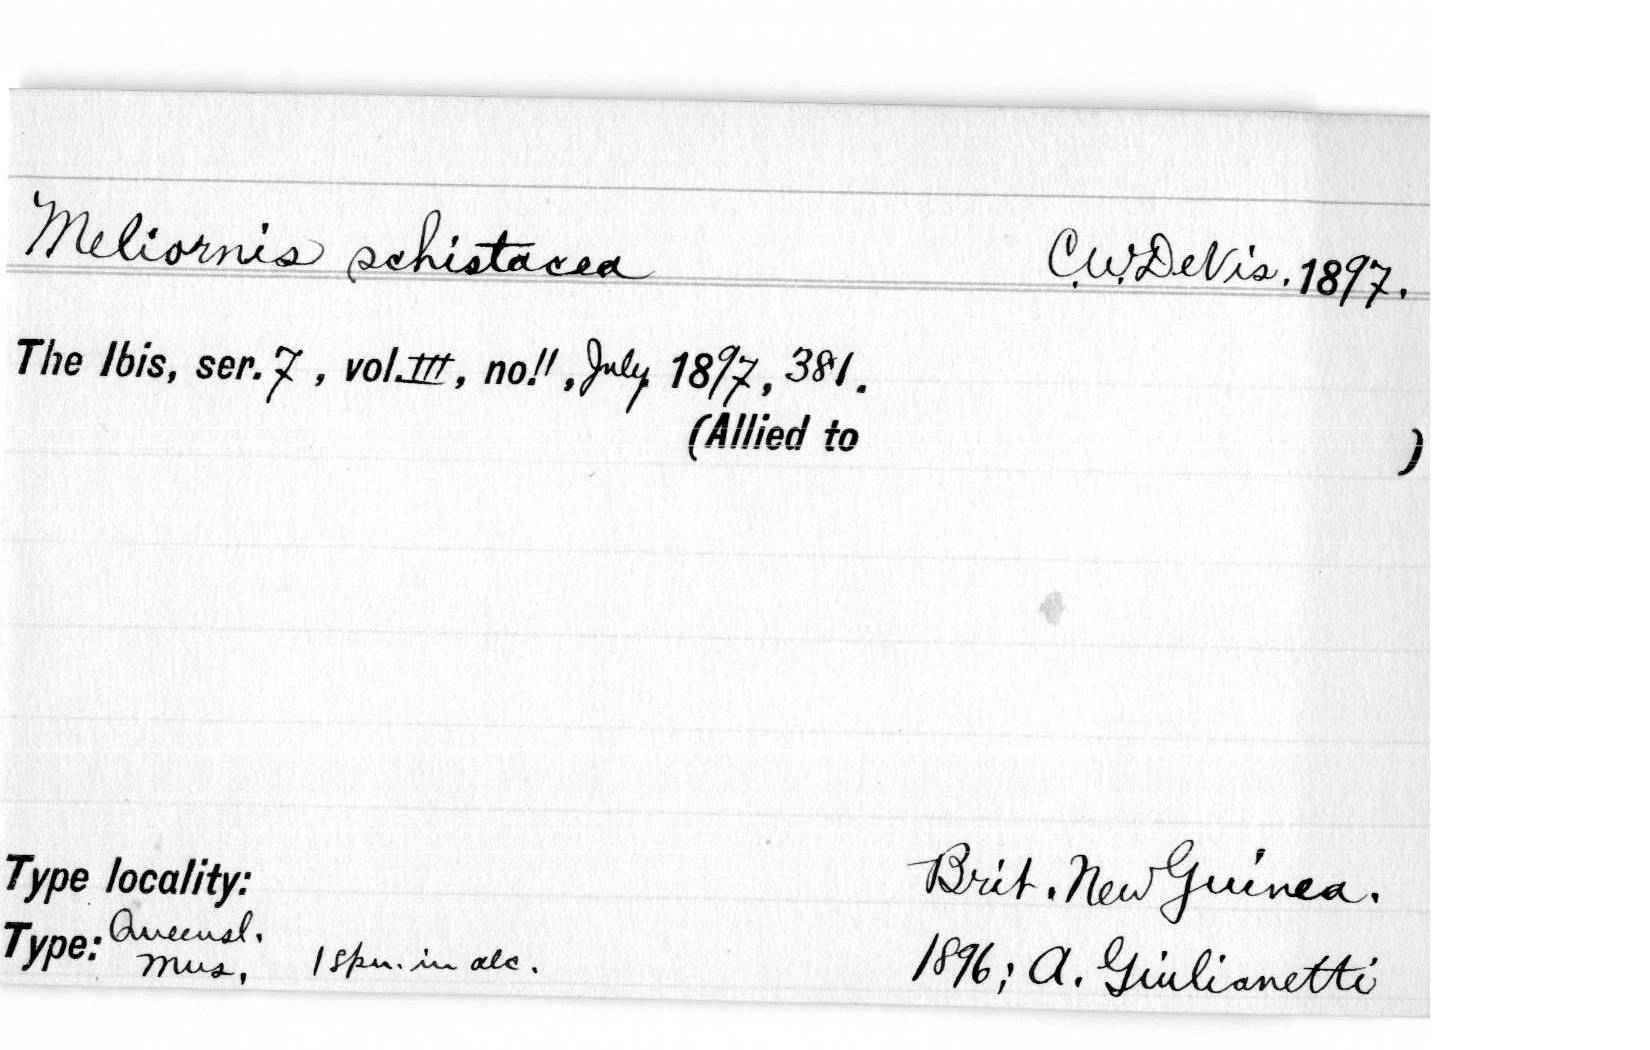 Meliornis schistacea C.W. DeVis. 1897.
The Ibis, ser. 7, vol. III, no. 11, July 1897, 381.
(Allied to )
Type locality: Brit. New Guinea.
Type: Queensl. Mus, 1 spn. in alc. 1896; A. Giulianetti